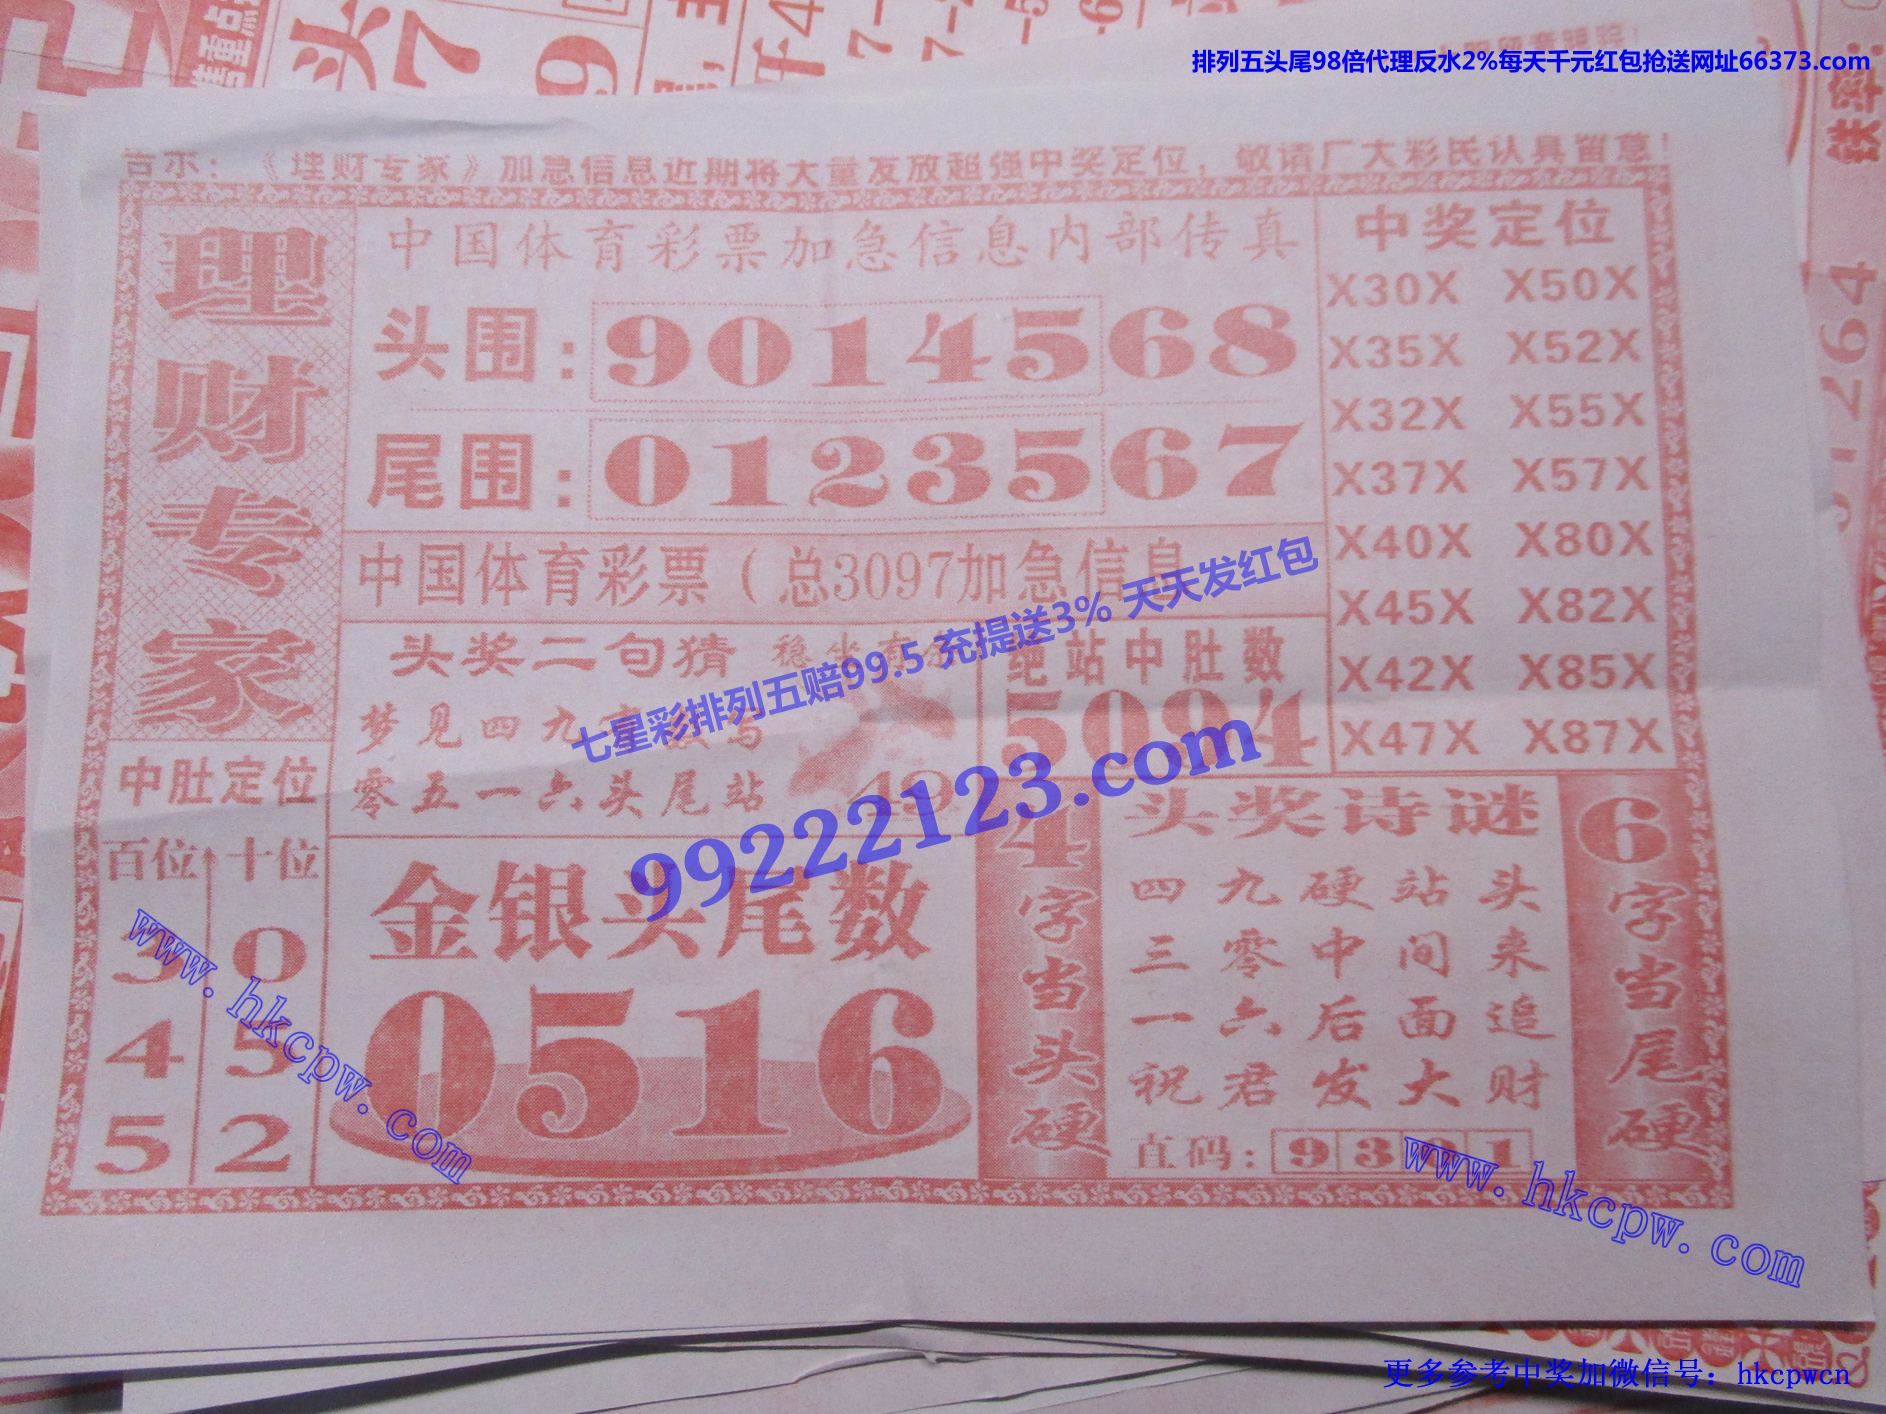 排列五头尾98倍代理反水2%每天千元红包抢送网址66373.com
告示：《理财专家》加急信息近期将大量发放超强中奖定位，敬请广大彩民认真留意！
理财专家
中国体育彩票加急信息内部传真
头围：9014568
尾围：0123567
中奖定位
X30X X50X
X35X X52X
X32X X55X
X37X X57X
X40X X80X
X45X X82X
X42X X85X
X47X X87X
中国体育彩票（总3097加急信息
七星彩排列五赔99.5 充提送3% 天天发红包
99222123.com
头奖二句猜
梦见四九
零五一六头尾站
49
绝站中肚数
5094
中肚定位
百位 十位
3 0
4 5
5 2
金银头尾数
0516
4字当头硬
头奖诗谜
四九硬站头
三零中间来
一六后面追
祝君发大财
直码：93 1
6字当尾硬
www.hkcpw.com
www.hkcpw.com
更多参考中奖加微信号：hkcpwcn
头7 9